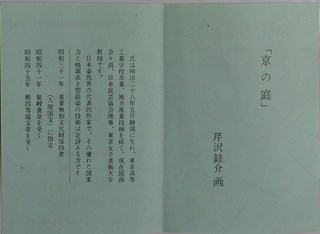 「京の庭」
芹沢銈介 画
氏は明治二十八年五月静岡に生れ、東京高等
工業学校卒業、地方産業技師を経て、現在国画
会々員、日本民芸協会理事、東京女子美術大学
教授です。
日本染色界の代表的作家で、その優れた図案
力と格調高き型絵染の技術は定評ある方です
昭和三十一年 重要無形文化財保持者
(人間国宝)に指定
昭和四十一年 紫綬褒章を受く
昭和四十五年 勲四等瑞宝章を受く